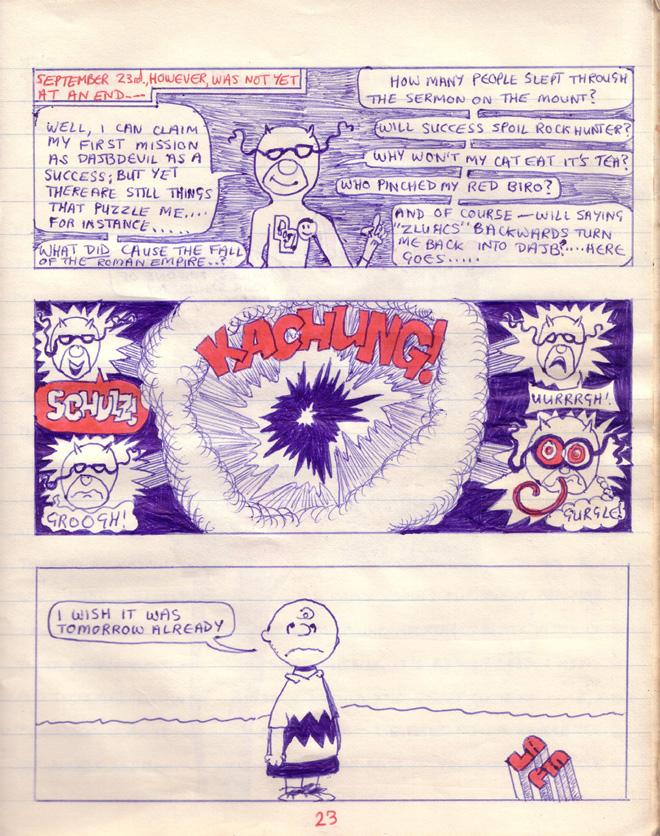 SEPTEMBER 23rd., HOWEVER, WAS NOT YET
AT AN END---
WELL, I CAN CLAIM
MY FIRST MISSION
AS DAJBDEVIL AS A
SUCCESS; BUT YET
THERE ARE STILL THINGS
THAT PUZZLE ME....
FOR INSTANCE.....
WHAT DID CAUSE THE FALL
OF THE ROMAN EMPIRE..?
HOW MANY PEOPLE SLEPT THROUGH
THE SERMON ON THE MOUNT?
WILL SUCCESS SPOIL ROCK HUNTER?
WHY WON'T MY CAT EAT IT'S TEA?
WHO PINCHED MY RED BIRO?
AND OF COURSE — WILL SAYING
"ZLUHCS" BACKWARDS TURN
ME BACK INTO DAJB?....HERE
GOES.....
SCHULZ!
GROOGH!
KACHUNG!
UURRRGH!
GURGLE!
I WISH IT WAS
TOMORROW ALREADY
LA
FIN
23